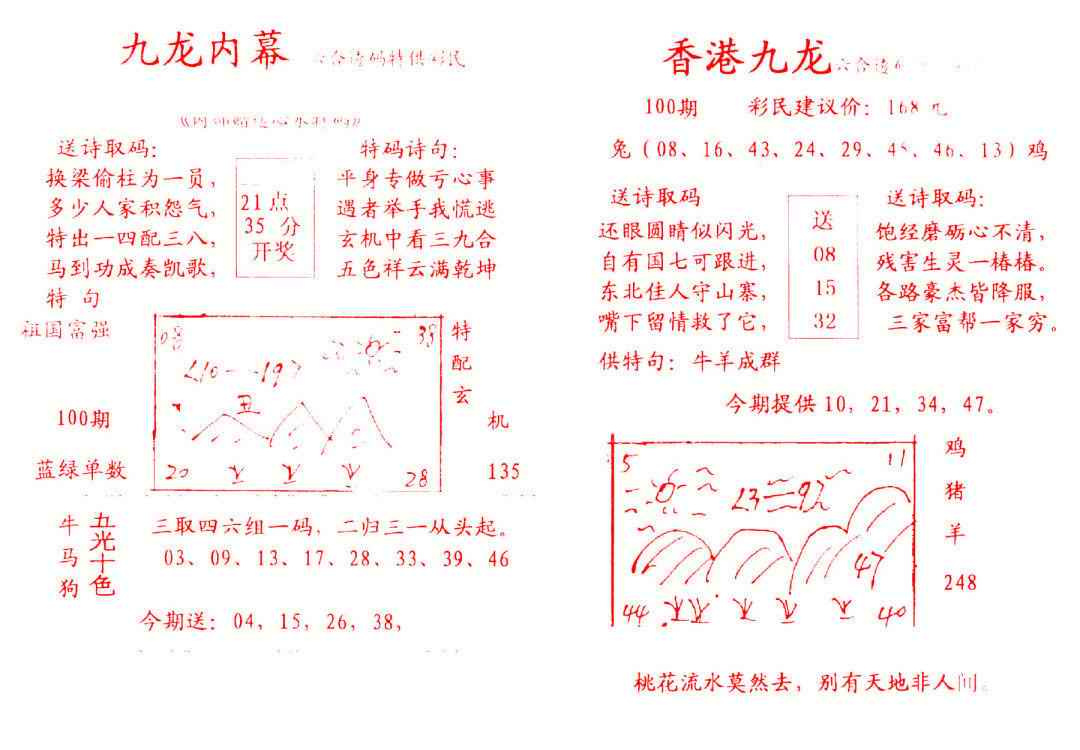 九龙内幕
送诗取码:
换梁偷柱为一员,
多少人家积怨气,
特出一四配三八,
马到功成奏凯歌,
特 句
祖国富强
21点
35 分
开奖
特码诗句:
平身专做亏心事
遇者举手我慌逃
玄机中看三九合
五色祥云满乾坤
08
33
210--197
丑
20
28
特
配
玄
机
135
100期
蓝绿单数
牛
马
狗
五光十色
三取四六组一码,二归三一从头起。
03、09、13、17、28、33、39、46
今期送: 04, 15, 26, 38,
香港九龙
100期 彩民建议价: 168 元
兔(08、16、43、24、29、45、46、13)鸡
送诗取码
还眼圆睛似闪光,
自有国七可跟进,
东北佳人守山寨,
嘴下留情救了它,
送
08
15
32
送诗取码:
饱经磨砺心不清,
残害生灵一椿椿。
各路豪杰皆降服,
三家富帮一家穷。
供特句: 牛羊成群
今期提供10, 21, 34, 47。
5
11
47
44
40
鸡
猪
羊
248
桃花流水莫然去, 别有天地非人间。